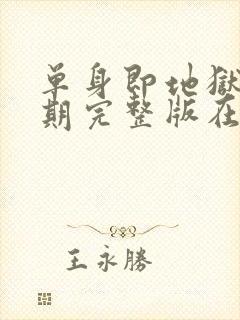 單身即地獄
期完整版在
王永勝